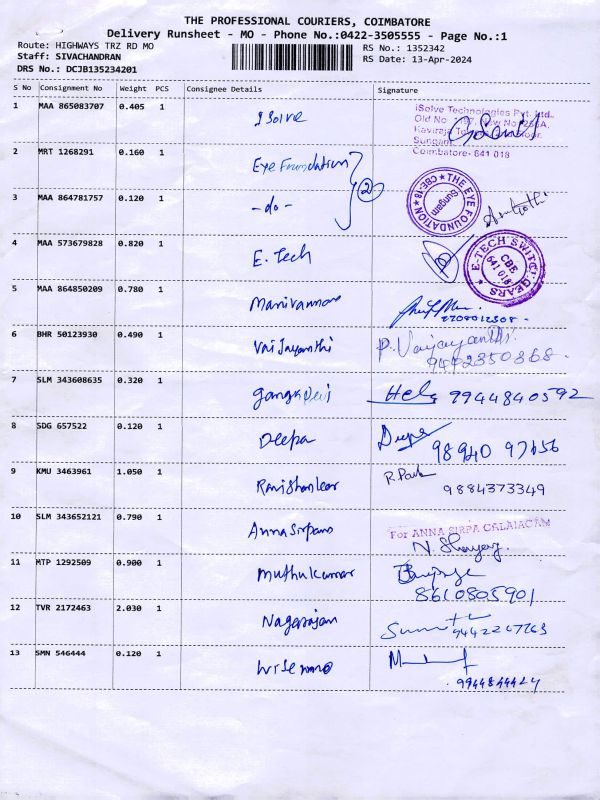 THE PROFESSIONAL COURIERS, COIMBATORE
Delivery Runsheet - MO - Phone No.:0422-3505555 - Page No.:1
Route: HIGHWAYS TRZ RD MO
RS No.: 1352342
Staff: SIVACHANDRAN
RS Date: 13-Apr-2024
DRS No.: DCJB135234201
S No Consignment No Weight PCS Consignee Details Signature
1 MAA 865083707 0.405 1 I Solve
iSolve Technologies Pvt. Ltd.,
Old No
Sungam
Coimbatore- 641 018
2 MRT 1268291 0.160 1 Eye Foundation
2
3 MAA 864781757 0.120 1 -do-
THE EYE FOUNDATION CBE-18
Sungam
4 MAA 573679828 0.820 1 E. Tech
E.TECH SWITCHGEARS
CBE
641 018
5 MAA 864850209 0.780 1 Manivannan
6 BHR 50123930 0.490 1 Vaijayanthi P. Vaijayanthi
9442350368
7 SLM 343608635 0.320 1 Ganga Devi 9944840592
8 SDG 657522 0.120 1 Deepa Deepa
9 KMU 3463961 1.050 1 Ravishankar
9884373349
10 SLM 343652121 0.790 1 Anna Sirpam
For ANNA SIRPA CALAIAGAM
11 MTP 1292509 0.900 1 Muthukumar
8610805901
12 TVR 2172463 2.030 1 Nagarajan
13 SMN 546444 0.120 1
9944844424